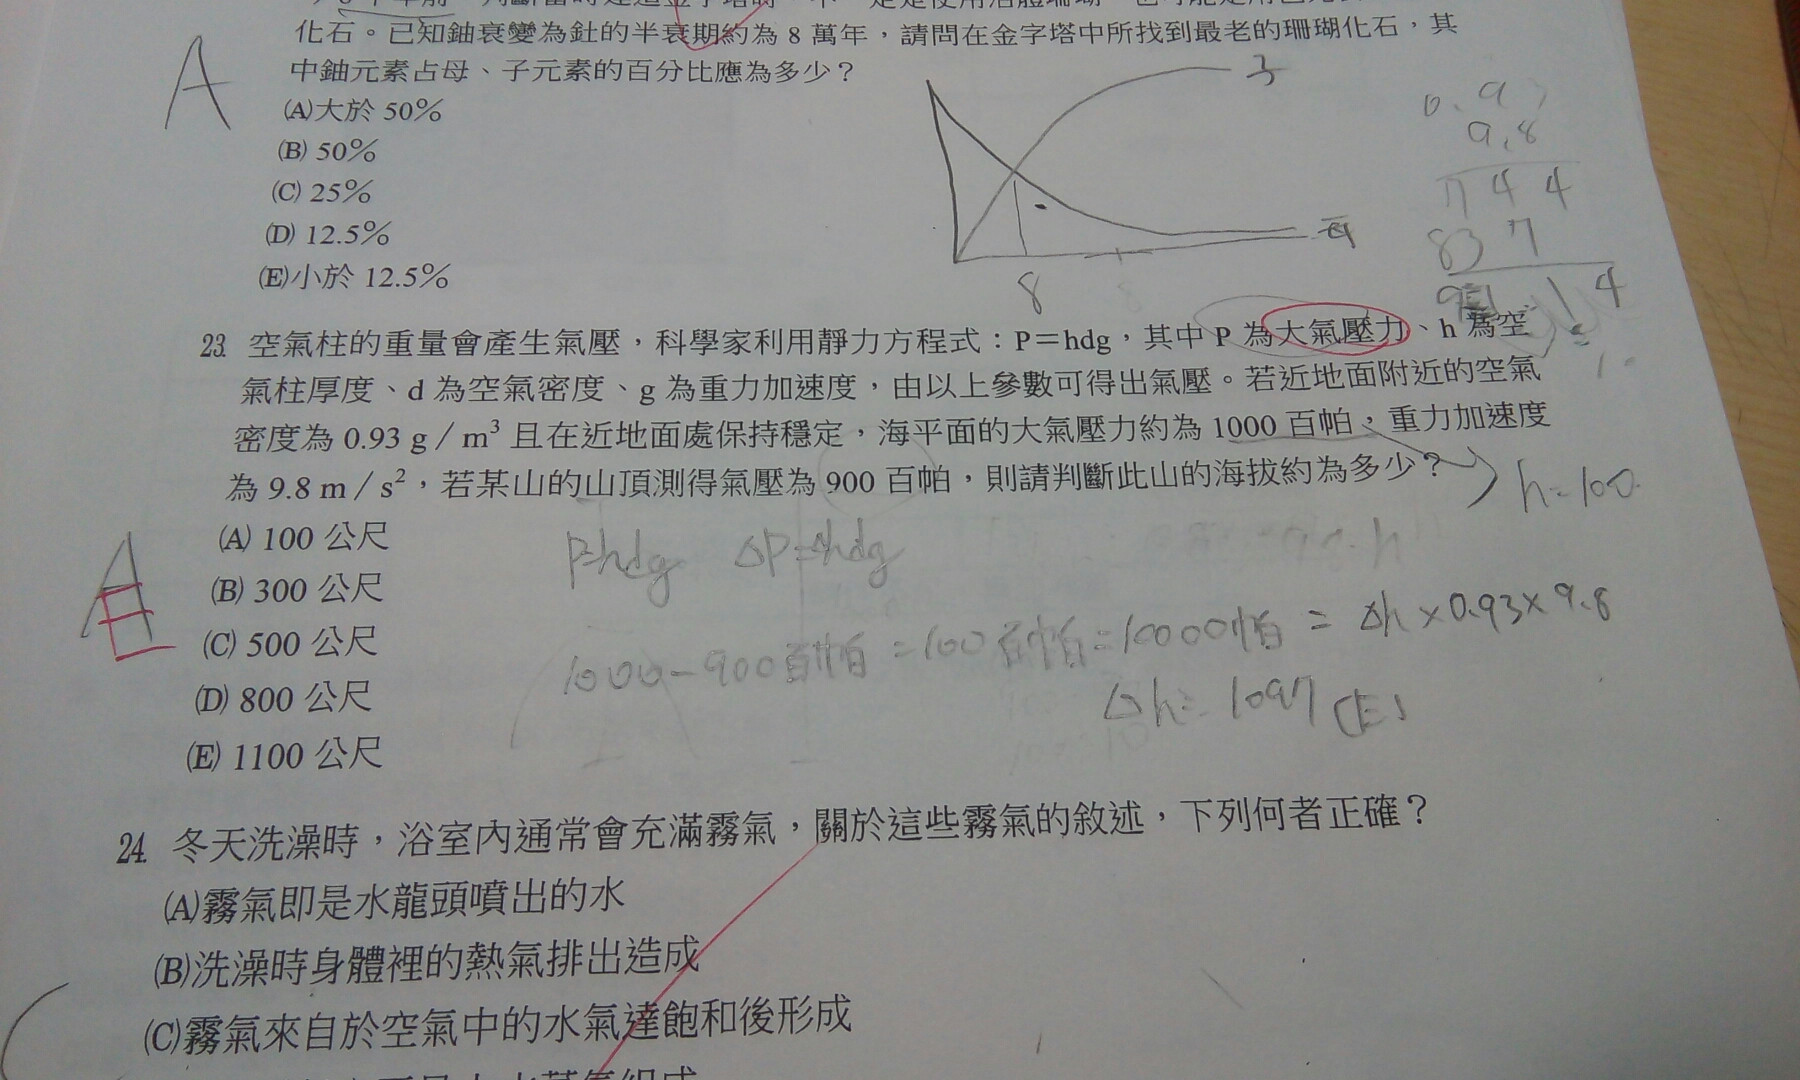 化石。已知鈾衰變為釷的半衰期約為 8 萬年，請問在金字塔中所找到最老的珊瑚化石，其
中鈾元素占母、子元素的百分比應為多少？
A
(A)大於 50%
(B) 50%
(C) 25%
(D) 12.5%
(E)小於 12.5%
子
8
9.8
744
837
23. 空氣柱的重量會產生氣壓，科學家利用靜力方程式：P＝hdg，其中 P 為大氣壓力、h 為空
氣柱厚度、d 為空氣密度、g 為重力加速度，由以上參數可得出氣壓。若近地面附近的空氣
密度為 0.93 g / m³ 且在近地面處保持穩定，海平面的大氣壓力約為 1000 百帕，重力加速度
為 9.8 m / s²，若某山的山頂測得氣壓為 900 百帕，則請判斷此山的海拔約為多少？
h=100
A
E
(A) 100 公尺
(B) 300 公尺
(C) 500 公尺
(D) 800 公尺
(E) 1100 公尺
P=hdg ΔP=Δhdg
1000-900百帕=100百帕=10000帕=Δh×0.93×9.8
Δh=1097 (E)
24. 冬天洗澡時，浴室內通常會充滿霧氣，關於這些霧氣的敘述，下列何者正確？
(A)霧氣即是水龍頭噴出的水
(B)洗澡時身體裡的熱氣排出造成
(C)霧氣來自於空氣中的水氣達飽和後形成